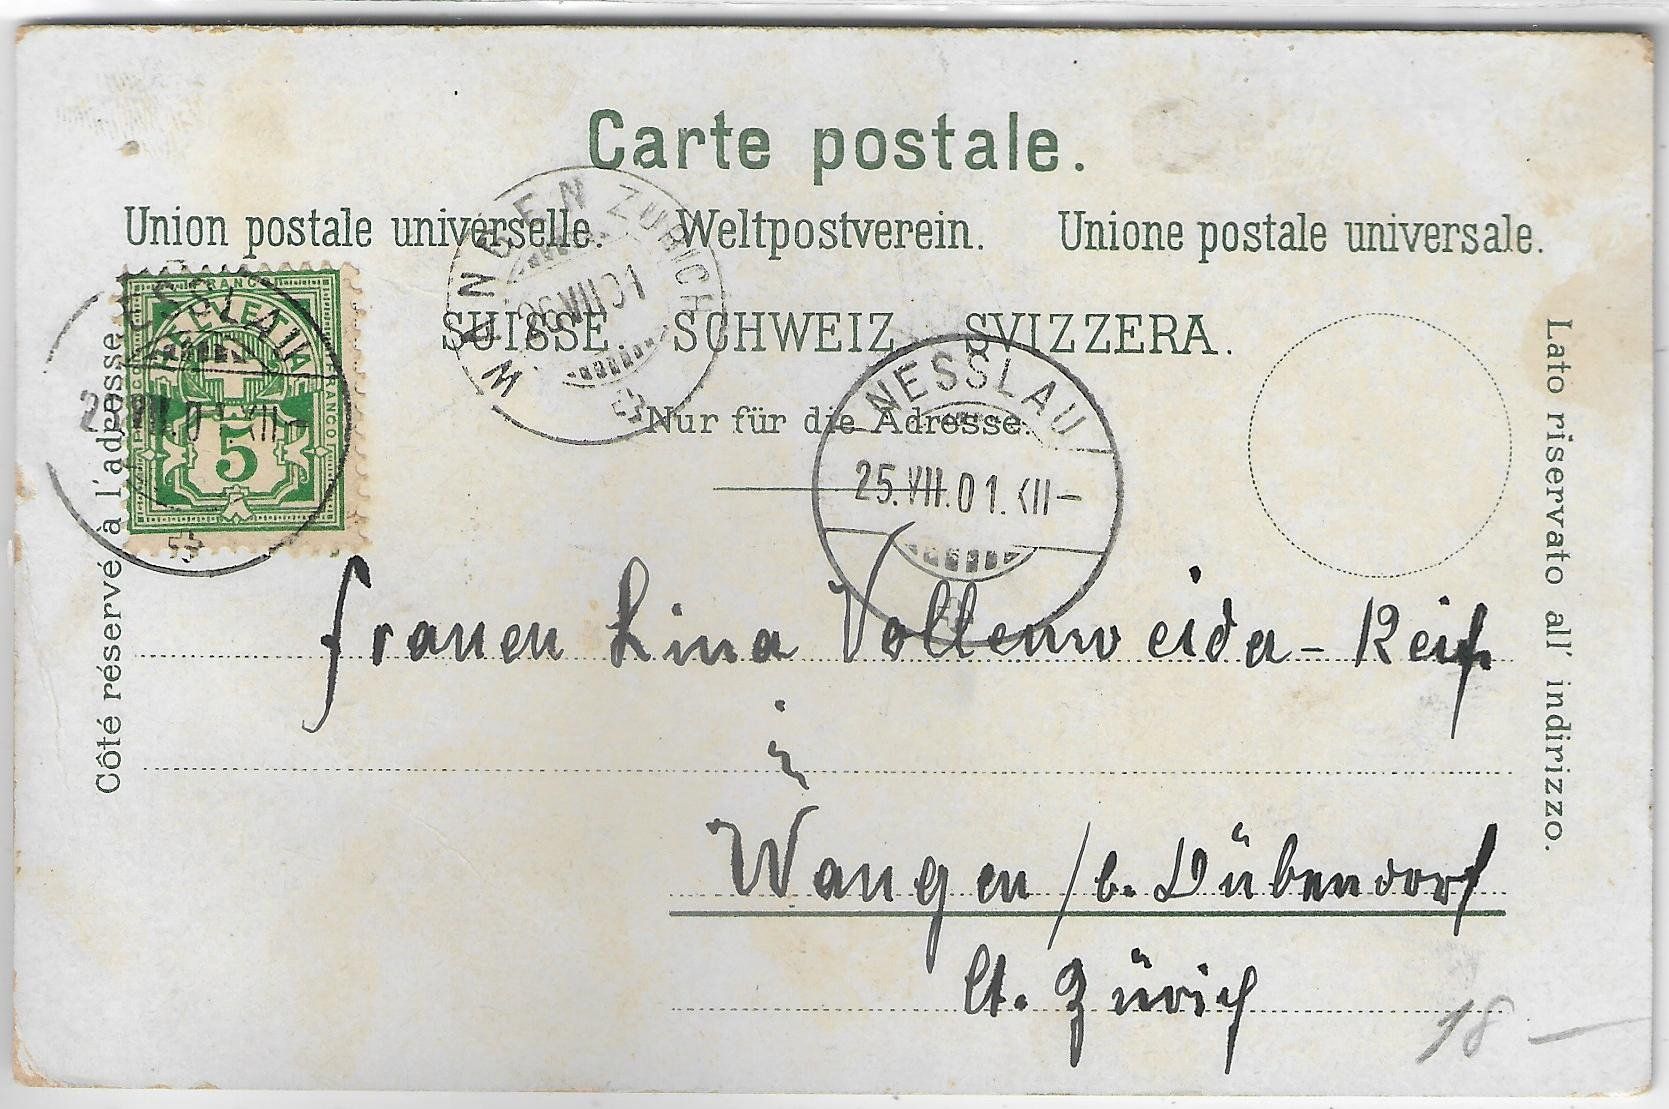 Carte postale.
Union postale universelle. Weltpostverein. Unione postale universale.
SUISSE. SCHWEIZ. SVIZZERA.
Nur für die Adresse.
Côté réservé à l'adresse.
Lato riservato all' indirizzo.
FRANCO
HELVETIA
FRANCO
5
NESSLAU
25.VII.01.XII-
WANGEN ZÜRICH
26.VII.01
NESSLAU
25.VII.01.XII-
Frauen Lina Vollenweider-Reif
in
Wangen / b. Dübendorf
Ct. Zürich
18 –